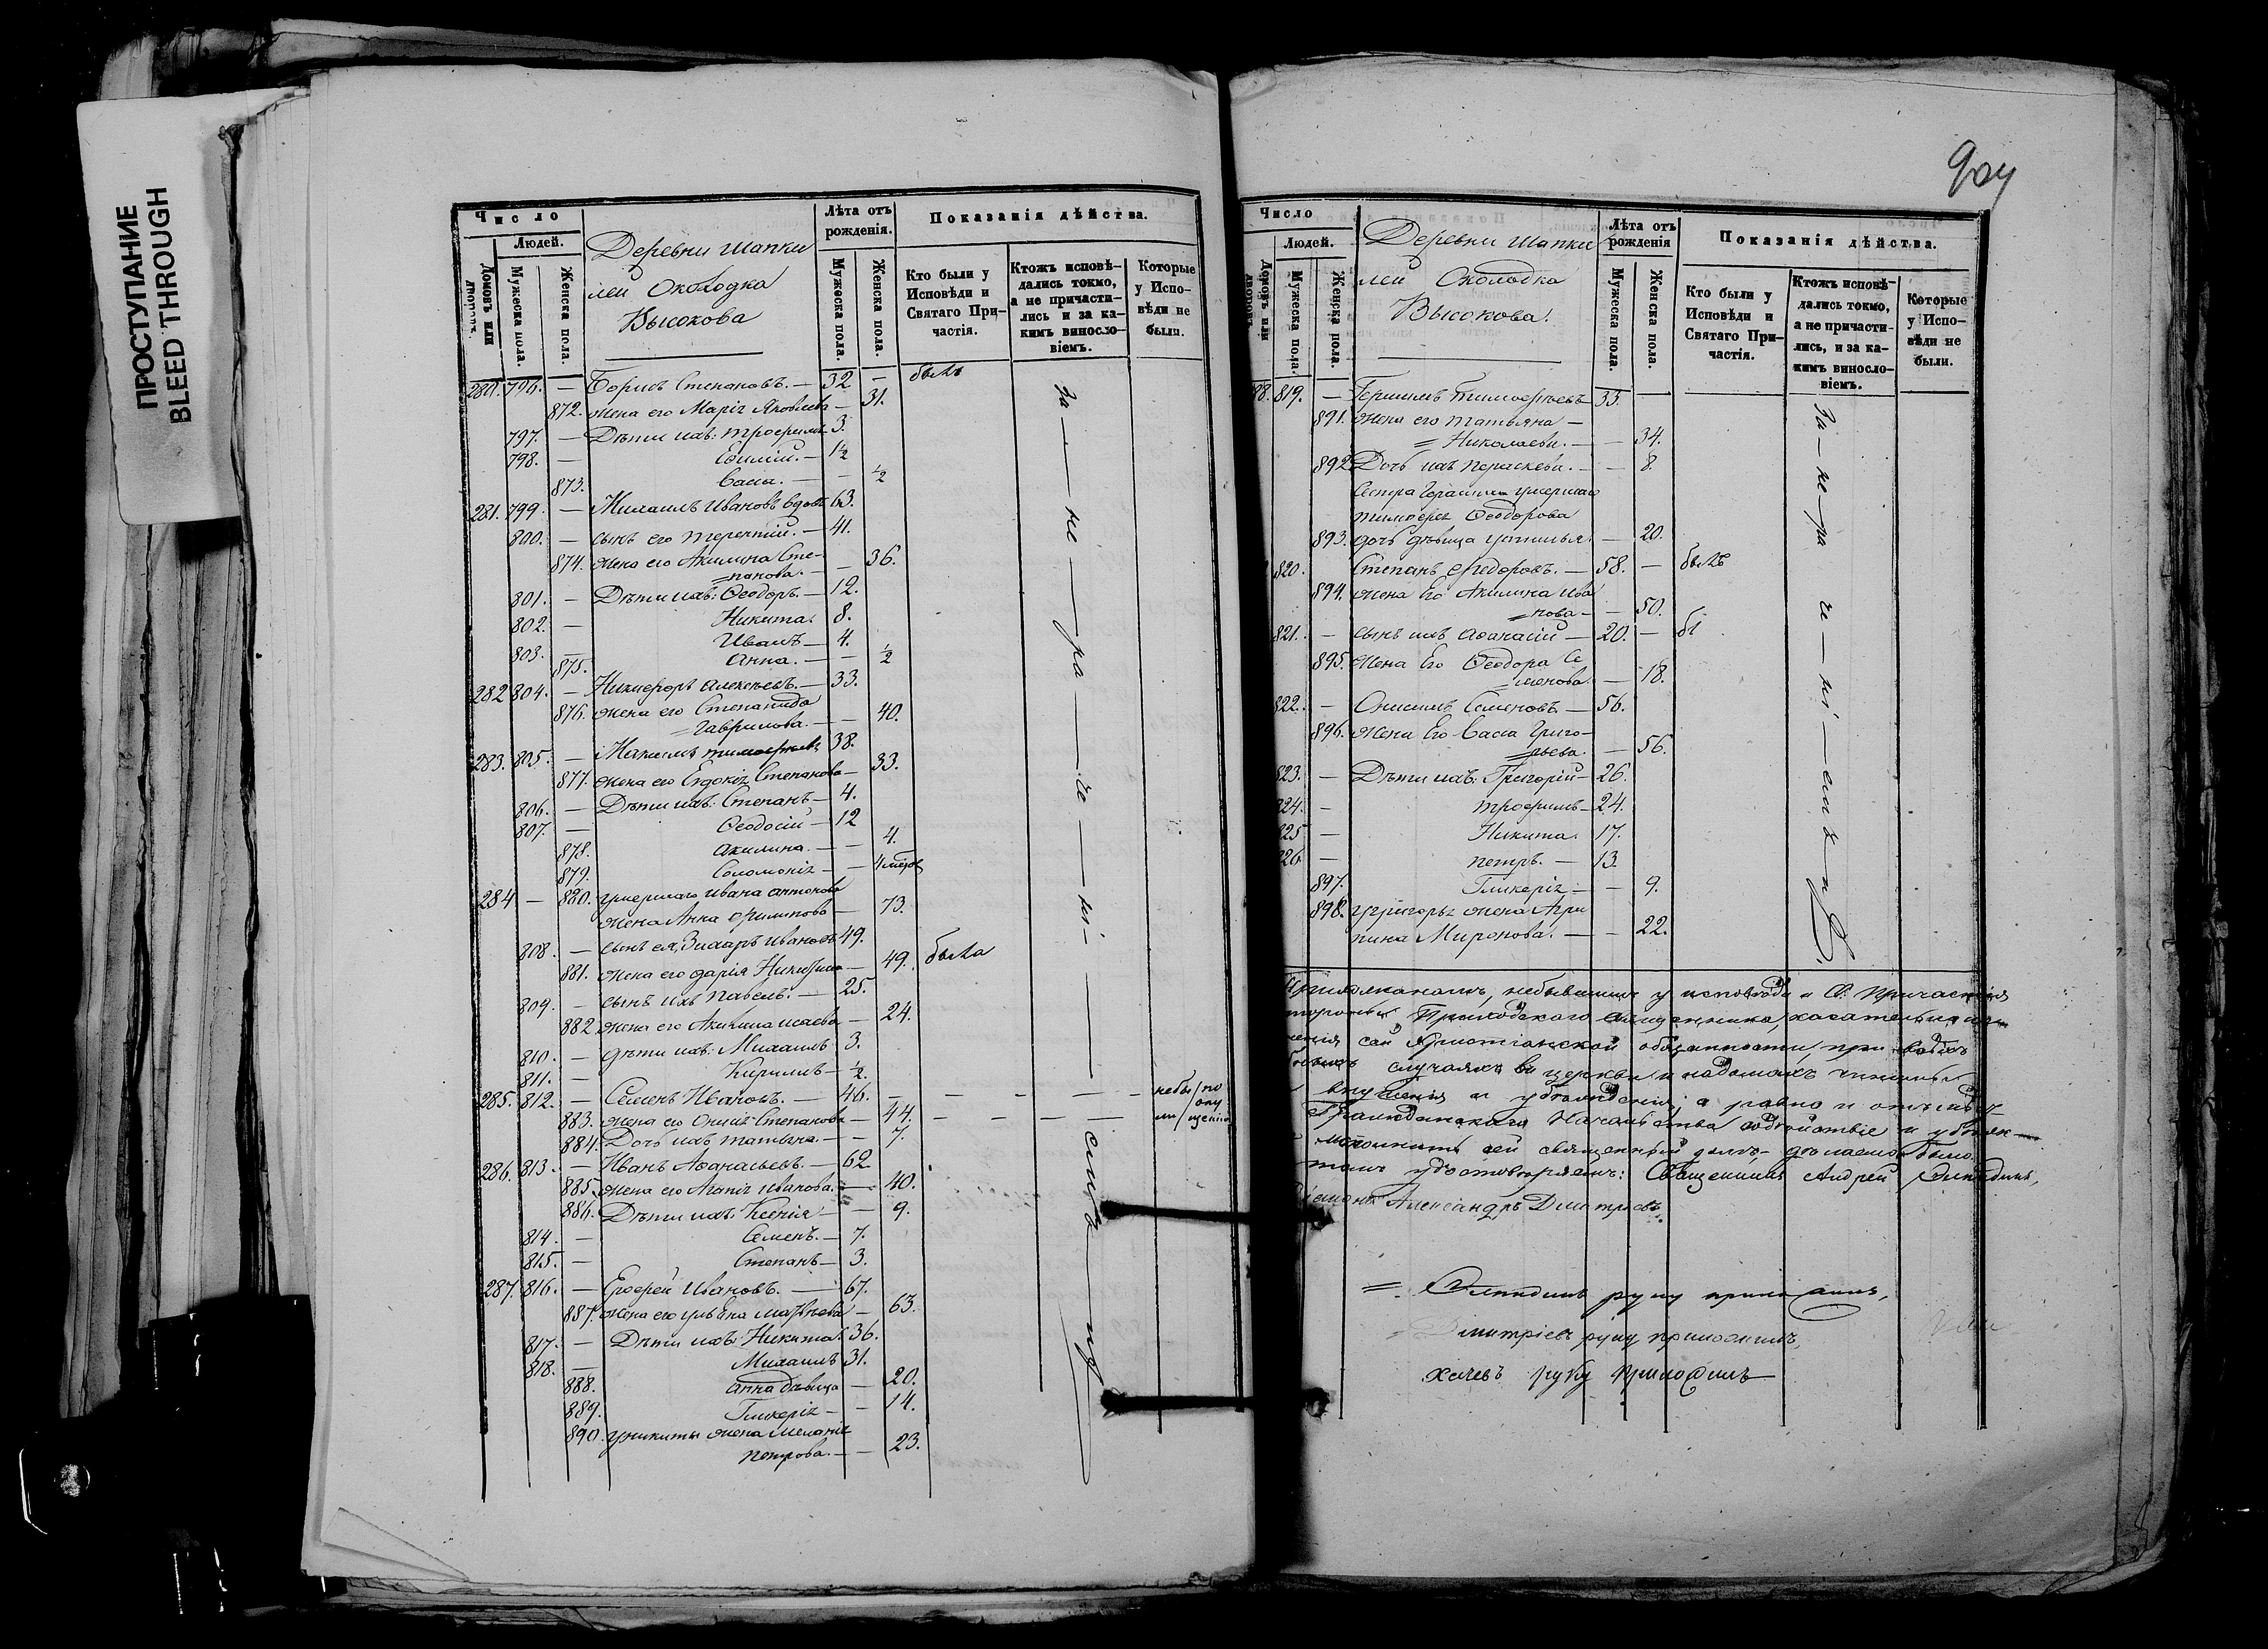 ПРОСТУПАНИЕ
BLEED THROUGH
Число
Людей.
Домовъ или дворовъ.
Мужеска пола.
Женска пола.
Деревни Шапки
лей Околодка
Высокова
Лѣта отъ
рожденія.
Мужеска пола.
Женска пола.
Показанія дѣйства.
Кто были у
Исповѣди и
Святаго При-
частія.
Ктожъ исповѣ-
дались токмо,
а не причасти-
лись и за ка-
кимъ виносло-
віемъ.
Которые
у Испо-
вѣди не
были.
280. 796. — Борисъ Степановъ. — 32 — былъ
872. жена его Марія Яковлева — 31.
797. — Дѣти ихъ: Трофимъ 3.
798. — 1½
873. Васса. — — ½
281. 799. — Михаилъ Ивановъ вдовъ 63.
800. — сынъ его Терентій. — 41.
874. жена его Акилина Сте-
=панова. — — 36.
801. — Дѣти ихъ: Ѳеодоръ. — 12.
802. — Никита. 8.
803. — Иванъ — 4.
875. Анна. — — ½
282 804. — Никифоръ Алексѣевъ. — 33.
876. жена его Степанида
=Гаврилова. — — 40.
283. 805. — Тимофѣевъ 38.
877. жена его Евдокія Степанова — 33.
806. — Дѣти ихъ: Степанъ — 4.
807. — Ѳеодосій — 12
878. Акилина. — — 4.
879. Соломонія — — 4
284 — 880. умершаго Ивана Антонова
жена Анна Филипова — 73.
808. — сынъ ея, Захаръ Ивановъ 49.
881. жена его Дарія Никитина — 49. была
809. — сынъ ихъ Павелъ. — 25.
882 жена его Акилина Исаева — 24.
810. — дѣти ихъ: Михаилъ 3.
811. — Кирилъ — ½.
285. 812. — Семенъ Ивановъ. — 46. — — — — — небы по
ли опу
щенію
883. жена его Степанова — 44. — — —
884. Дочь ихъ Татьяна. — — 7.
286. 813. — Иванъ Аѳанасьевъ. — 62
885. жена его Агапія Иванова. — — 40.
886. Дѣти ихъ: Ксенія — — 9.
814. — Семенъ. — 7.
815. — Степанъ — 3.
287. 816. — Ерофей Ивановъ. — 67.
887. жена его Ульяна Матвѣева — 63.
817. — Дѣти ихъ: Никита 36.
818. — Михаилъ 31.
888. Анна дѣвица — 20.
889. Гликерія — — 14.
890. у Никиты жена Меланія
Петрова. — — 23.
за — не — ра — че — ні — емъ
904
Число
Людей.
Домовъ или дворовъ.
Мужеска пола.
Женска пола.
Деревни Шапки
лей Околодка
Высокова.
Лѣта отъ
рожденія
Мужеска пола.
Женска пола.
Показанія дѣйства.
Кто были у
Исповѣди и
Святаго При-
частія.
Ктожъ исповѣ-
дались токмо,
а не причасти-
лись, и за ка-
кимъ виносло-
віемъ.
Которые
у Испо-
вѣди не
были.
88. 819. — Тимофѣевъ 35. —
891. жена его Татьяна —
= Николаева. — — 34.
892 Дочь ихъ Параскева. — — 8.
Сестра умершаго
Тимофея Ѳеодорова
893. дочь дѣвица — 20.
820. Степанъ Ѳедоровъ. — 58. — былъ
894. жена Его Акилина Ива
=нова — — 50.
821. — сынъ ихъ Аѳанасій — 20. — бы
895. Жена Его Ѳеодора Се
=менова. — 18.
822. — Онисимъ Семеновъ — 56.
896. Жена Его Васса Григо-
=рьева. — 56.
823. — Дѣти ихъ: Григорій — 26.
824. — Трофимъ — 24.
825 — Никита. 17.
826 — Петръ. — 13.
897. Гликерія — — 9.
898. у Григорья жена Агри
пина Миронова. — — 22.
За — не — ра — че — ні — емъ
Прихожанамъ, небывшимъ у исповѣди и Св. Причастія
Приходскаго Священника, касательно
сей Христіанской обязанности, при
случаяхъ въ церкви и на домахъ
внушенія и убѣжденія; а равно и отъ
Гражданскаго Начальства содѣйствіе и
исполнить сей священный долгъ, дѣлаемо было.
томъ удостовѣряемъ: Священникъ Андрей
Александръ Дмитріевъ.
руку приложилъ,
Дмитріевъ руку приложилъ,
руку приложилъ